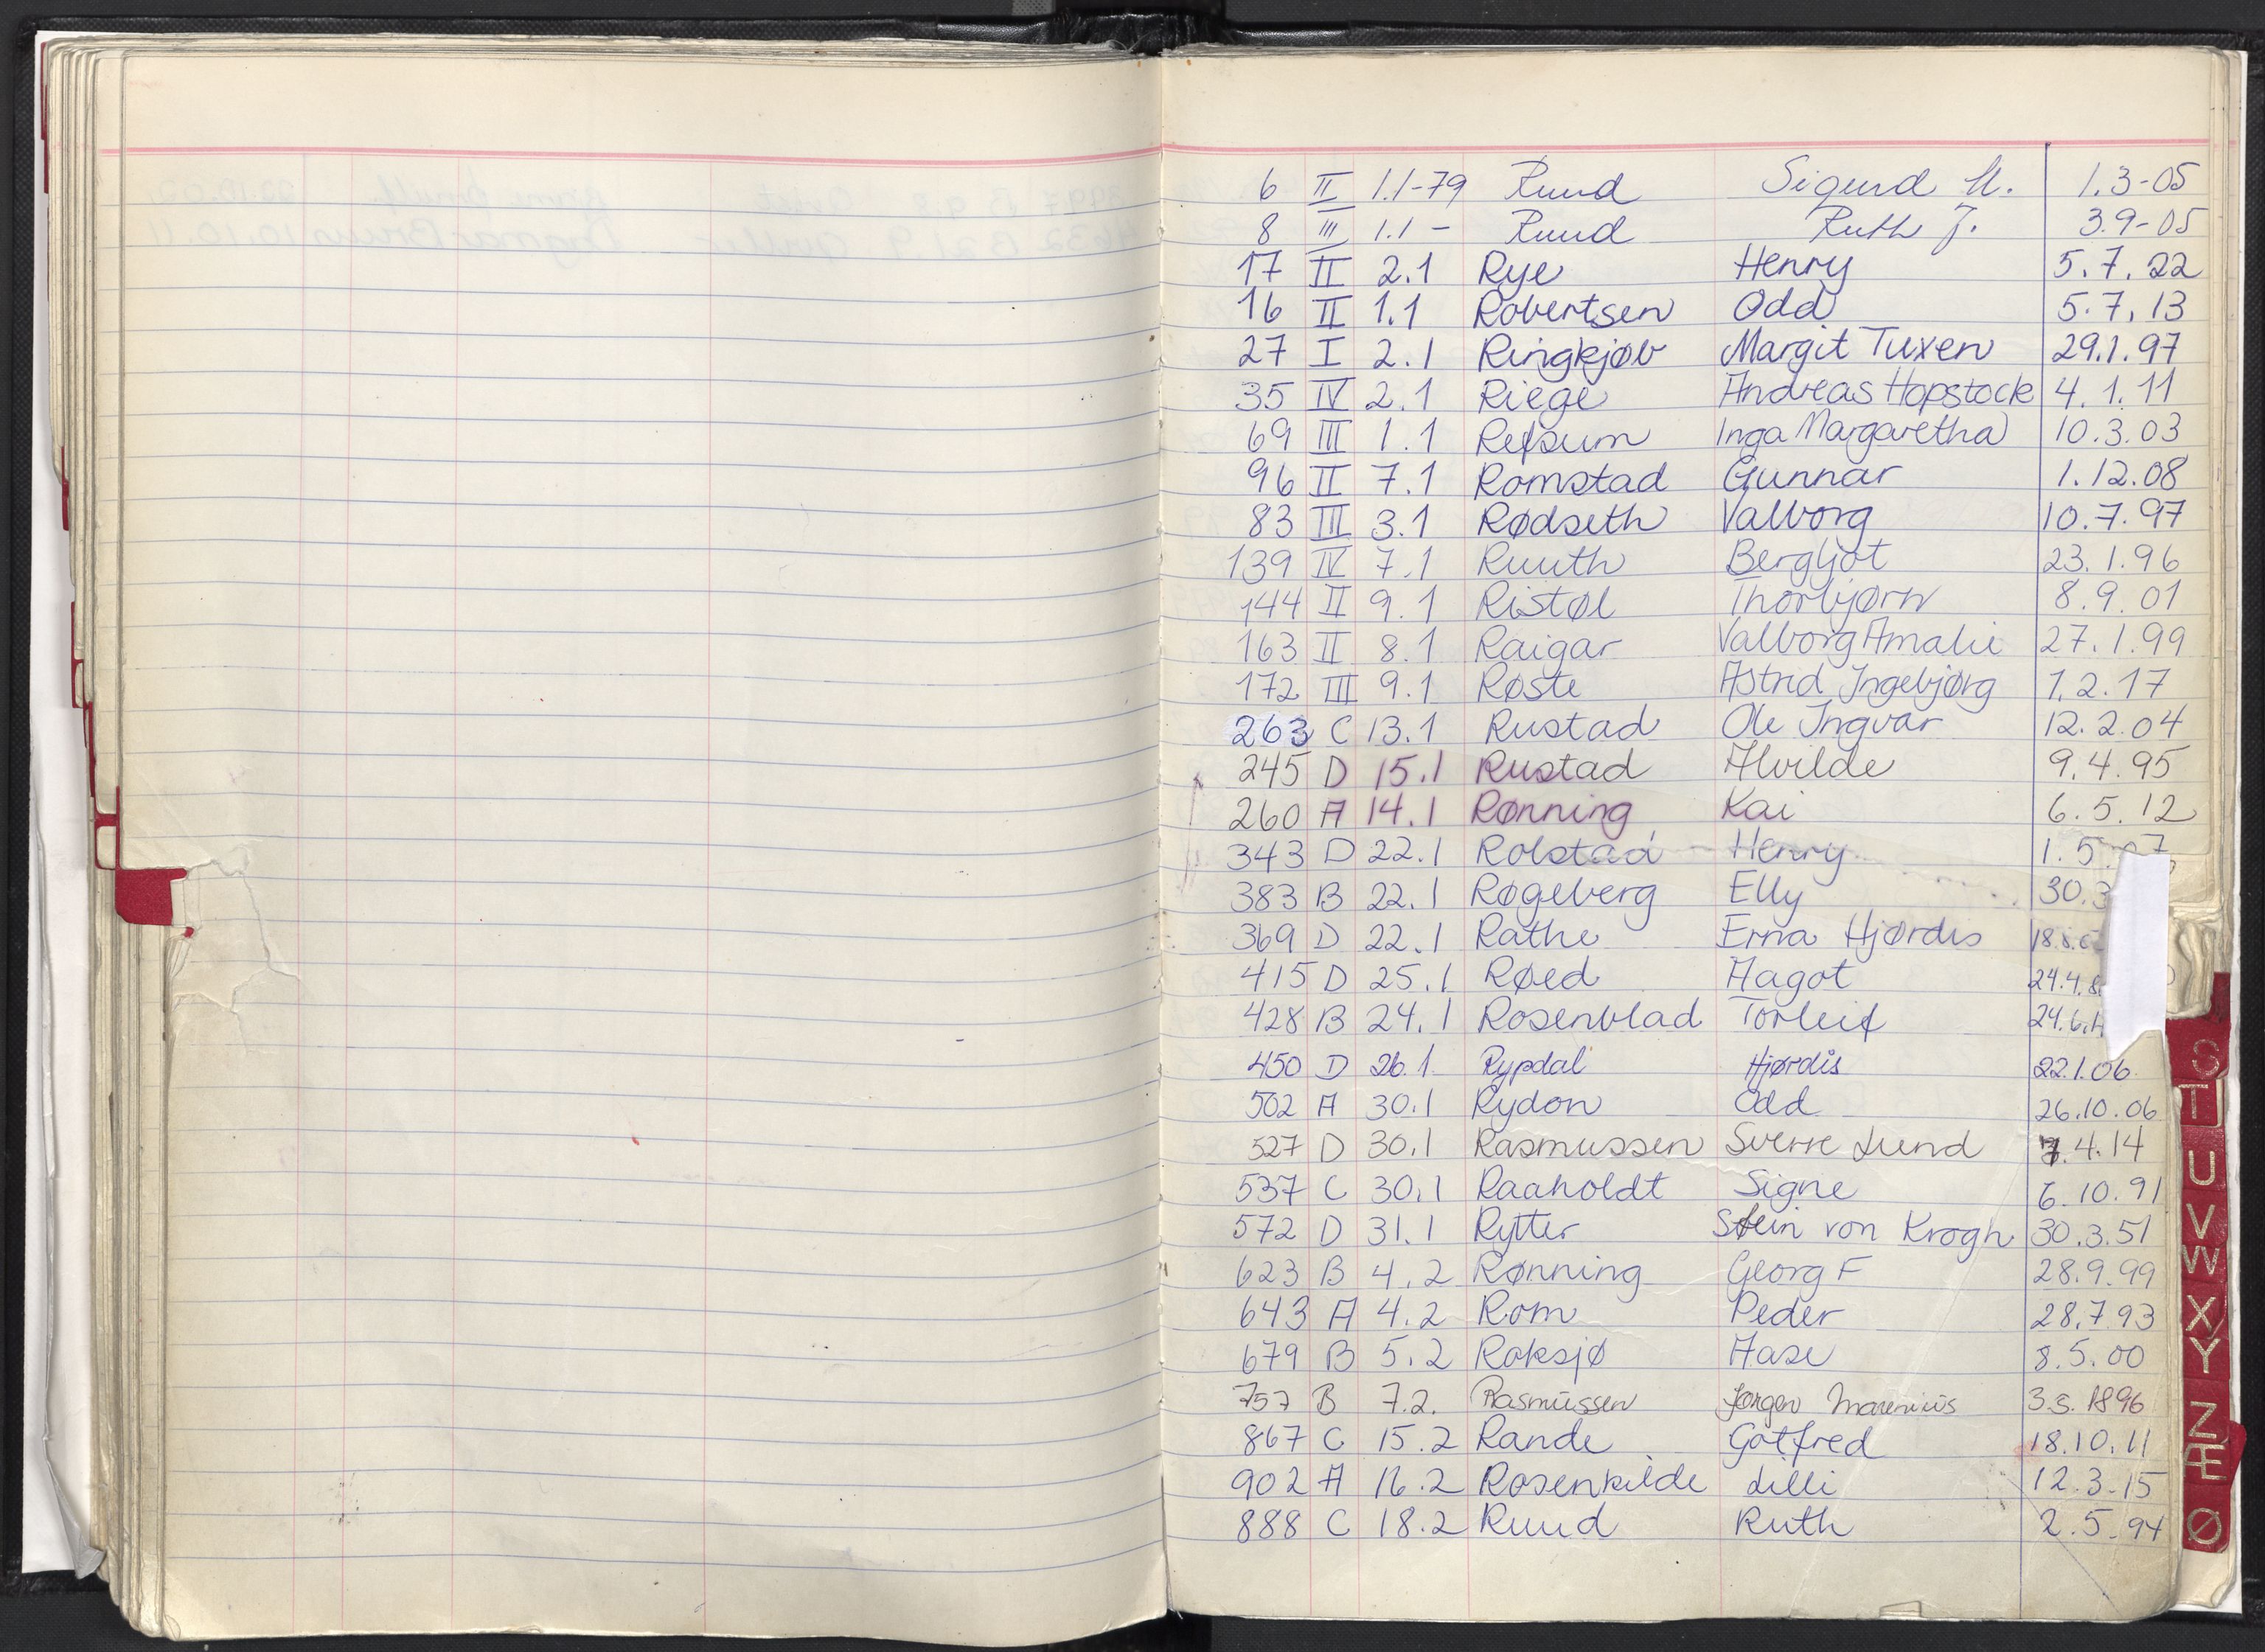 6 II 1.1-79 Ruud Sigurd M. 1.3-05
8 III 1.1 - Ruud Ruth J. 3.9-05
17 II 2.1 Rye Henry 5.7.22
16 II 1.1 Robertsen Odd 5.7.13
27 I 2.1 Ringkjøb Margit Tuxen 29.1.97
35 IV 2.1 Riege Andreas Hopstock 4.1.11
69 III 1.1 Refsum Inga Margaretha 10.3.03
96 II 7.1 Romstad Gunnar 1.12.08
83 III 3.1 Rødseth Valborg 10.7.97
139 IV 7.1 Ruuth Bergljot 23.1.96
144 II 9.1 Ristøl Thorbjørn 8.9.01
163 II 8.1 Raigar Valborg Amalie 27.1.99
172 III 9.1 Røste Astrid Ingebjørg 1.2.17
263 C 13.1 Rustad Ole Ingvar 12.2.04
245 D 15.1 Rustad Alvilde 9.4.95
260 A 14.1 Rønning Kai 6.5.12
343 D 22.1 Rolstad Henry 1.5.07
383 B 22.1 Røgeberg Elly 30.3
369 D 22.1 Rathe Erna Hjørdis 18.8.
415 D 25.1 Røed Aagot 24.4.8
428 B 24.1 Rosenblad Torleif 24.6.
450 D 26.1 Rypdal Hjørdis 22.1.06
502 A 30.1 Rydon Odd 26.10.06
527 D 30.1 Rasmussen Sverre Lund 7.4.14
537 C 30.1 Raaholdt Signe 6.10.91
572 D 31.1 Rytter Stein von Krogh 30.3.51
623 B 4.2 Rønning Georg F 28.9.99
643 A 4.2 Rom Peder 28.7.93
679 B 5.2 Roksjø Aase 8.5.00
757 B 7.2. Rasmussen Jørgen Marenius 3.5.1896
867 C 15.2 Rande Gotfred 18.10.11
902 A 16.2 Rosenkilde Lilli 12.3.15
888 C 18.2 Ruud Ruth 2.5.94
S
T
U
V
W
X
Y
Z
Æ
Ø